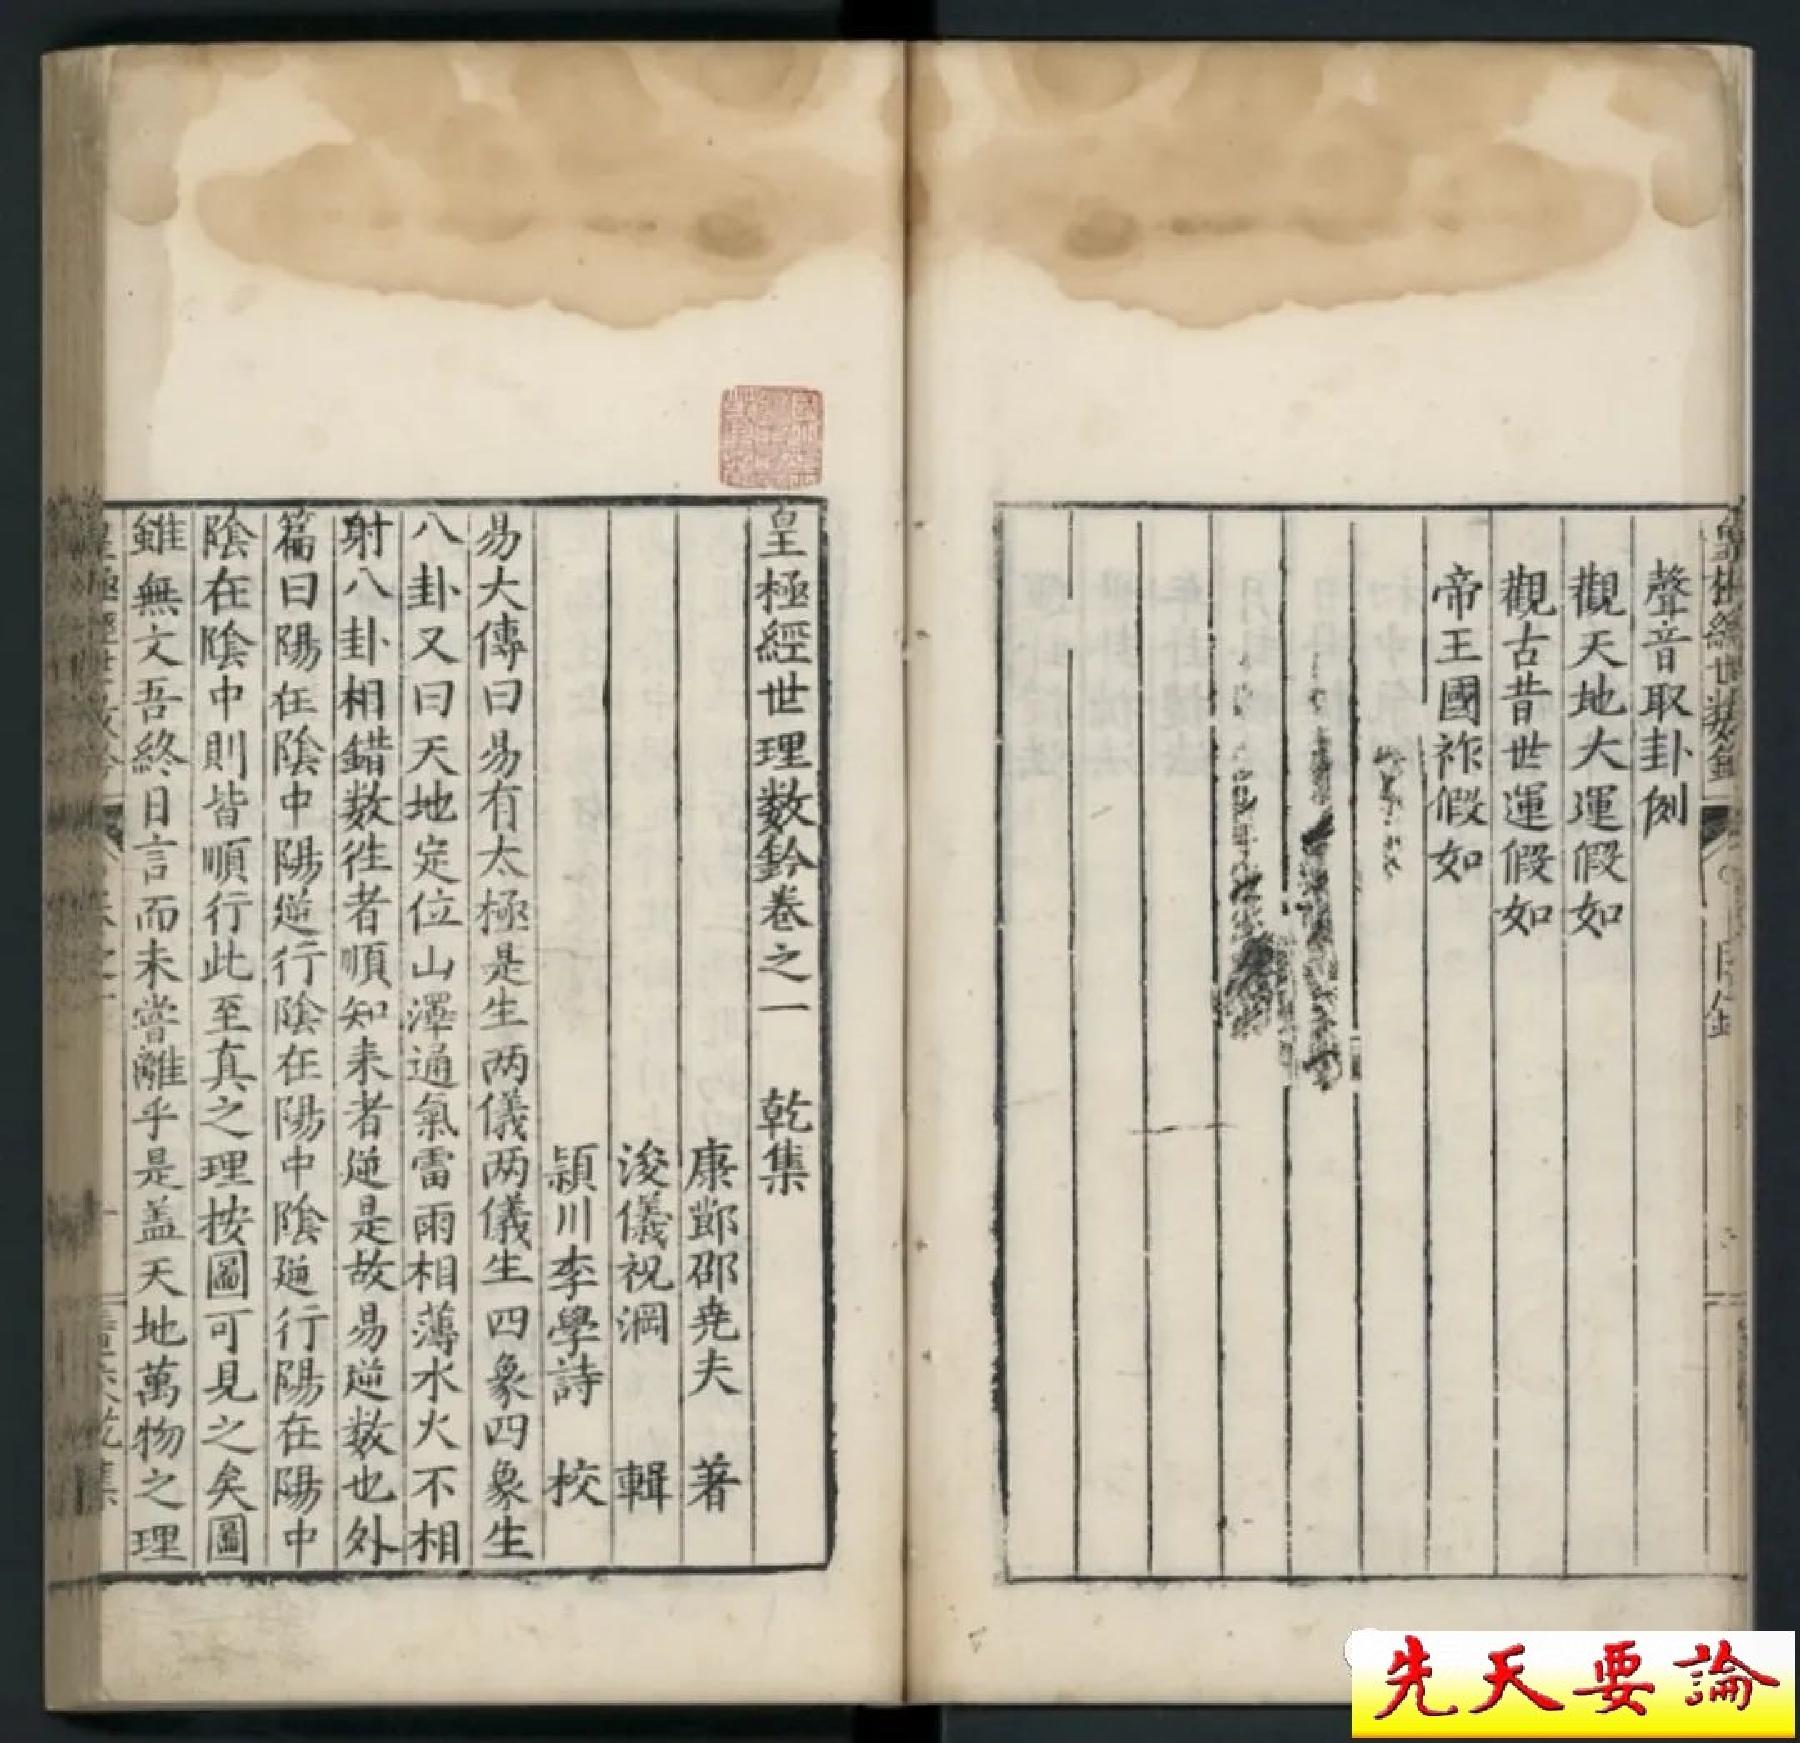 聲音取卦例
觀天地大運假如
觀古昔世運假如
帝王國祚假如
皇極經世理数鈐卷之一　乾集
康鄴邵堯夫　著
浚儀祝潤　輯
潁川李學詩　校
易大傳曰易有太極是生两儀两儀生四象四象生
八卦又曰天地定位山澤通氣雷雨相薄水火不相
射八卦相錯数徃者順知来者逆是故易逆数也外
篇曰陽在陰中陽逆行陰在陽中陰逆行陽在陽中
陰在陰中則皆順行此至真之理按圖可見之矣圖
雖無文吾終日言而未嘗離乎是盖天地萬物之理
先天要論